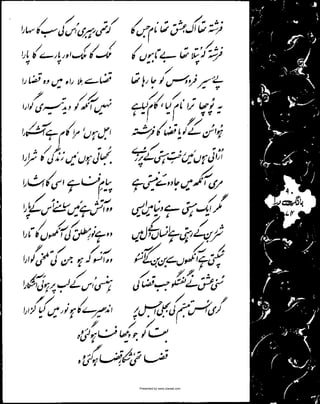 فرشتہ تھا اک عشق تھا نام جس کا کہ تھی رہبری اس کی سب کا سہارا
فرشتہ کہ پتلا تھا بے تابیوں کا ملک کا ملک اور پارے کا پارا
پئے سیر فردوس کو جا رہا تھا قضا سے ملا راہ میں وہ قضا را
یہ پوچھا ترا نام کیا، کام کیا ہے نہیں آنکھ کو دید تیری گوارا
ہوا سن کے گویا قضا کا فرشتہ اجل ہوں، مرا کام ہے آشکارا
اڑاتی ہوں میں رختِ ہستی کے پرزے بجھاتی ہوں میں زندگی کا شرارا
مری آنکھ میں جادوئے نیستی ہے پیامِ فنا ہے اسی کا اشارا
مگر ایک ہستی ہے دنیا میں ایسی وہ آتش ہے میں سامنے اس کے پارا
شرر بن کے رہتی ہے انساں کے دل میں وہ ہے نورِ مطلق کی آنکھوں کا تارا
ٹپکتی ہے آنکھوں سے بن بن کے آنسو وہ آنسو کہ ہو جن کی تلخی گوارا
سنی عشق نے گفتگو جب قضا کی ہنسی اس کے لب پر ہوئی آشکارا
گری اس تبسم کی بجلی اجل پر اندھیرے کا ہو نور میں کیا گزارا
بقا کو جو دیکھا فنا ہو گئی وہ
قضا تھی شکارِ قضا ہو گئی وہ
۹۰
بانگِ درا
Presented by www.ziaraat.com